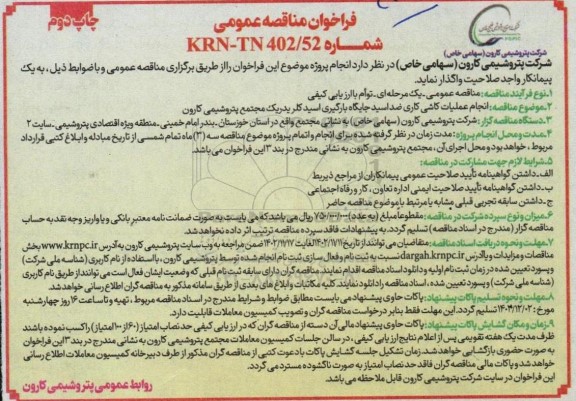 فراخوان مناقصه عمومی
چاپ دوم
شماره KRN-TN 402/52
شرکت پتروشیمی کارون (سهامی خاص)
شرکت پتروشیمی کارون (سهامی خاص) در نظر دارد انجام پروژه موضوع این فراخوان را از طریق برگزاری مناقصه عمومی و با ضوابط ذیل، به یک
پیمانکار واجد صلاحیت واگذار نماید.
۱.نوع فرآیند مناقصه: مناقصه عمومی-یک مرحله‌ای-توأم با ارزیابی کیفی
۲.موضوع مناقصه: انجام عملیات کاشی کاری ضد اسید جایگاه بارگیری اسید کلریدریک مجتمع پتروشیمی کارون
۳.دستگاه مناقصه گزار: شرکت پتروشیمی کارون (سهامی خاص) به نشانی مجتمع واقع در استان خوزستان-بندر امام خمینی-منطقه ویژه اقتصادی پتروشیمی-سایت ۲
۴.مدت و محل انجام پروژه: مدت زمان در نظر گرفته شده برای انجام و اتمام پروژه موضوع مناقصه سه (۳) ماه تمام شمسی از تاریخ مبادله و ابلاغ کتبی قرارداد
مربوط، خواهد بود و محل اجرای آن، مجتمع پتروشیمی کارون به نشانی مندرج در بند ۳ این فراخوان می‌باشد.
۵.شرایط لازم جهت مشارکت در مناقصه:
الف-داشتن گواهینامه تأیید صلاحیت عمومی پیمانکاران از مراجع ذیربط
ب-داشتن گواهینامه تأیید صلاحیت ایمنی اداره تعاون، کار و رفاه اجتماعی
ج-داشتن سابقه تجربی قبلی مشابه یا مرتبط با موضوع مناقصه حاضر
۶.میزان و نوع سپرده شرکت در مناقصه: مقطوعاً مبلغ (به عدد) ریال می باشد که می بایست به صورت ضمانت نامه معتبر بانکی و یا واریز وجه نقد به حساب
مناقصه گزار (مندرج در اسناد مناقصه) تسلیم گردد. به پیشنهادات فاقد سپرده مناقصه ترتیب اثر داده نخواهد شد.
۷.مهلت و نحوه دریافت اسناد مناقصه: متقاضیان می توانند از تاریخ لغایت ۱۴۰۲/۱۲/۱۷ ضمن مراجعه به وب سایت پتروشیمی کارون به آدرس www.krnpc.ir بخش
مناقصات و مزایدات و یا آدرس dargah.krnpc.ir نسبت به ثبت نام و فعال سازی ثبت نام انجام شده توسط پتروشیمی کارون، با استفاده از نام کاربری (شناسه ملی شرکت)
و پسورد تعیین شده در زمان ثبت نام اولیه و دانلود اسناد مناقصه اقدام نمایند. مناقصه گران دارای سابقه ثبت نام قبلی که وضعیت ایشان فعال است می توانند از طریق نام کاربری
(شناسه ملی شرکت) و پسورد تعیین شده، اسناد مناقصه را دانلود نمایند. کلیه مکاتبات و ابلاغ های بعدی از طریق سامانه مذکور به مناقصه گران اطلاع رسانی خواهد شد.
۸.مهلت و نحوه تسلیم پاکات پیشنهاد: پاکات حاوی پیشنهاد می بایست مطابق ضوابط و شرایط مندرج در اسناد مناقصه مربوط، تهیه و تا ساعت ۱۶ روز چهارشنبه
مورخ تسلیم گردد. این مهلت فقط بنابر درخواست مناقصه گران و تصویب کمیسیون معاملات قابلیت دارد.
۹.زمان و مکان گشایش پاکات پیشنهاد: پاکات حاوی پیشنهاد مالی آن دسته از مناقصه گران که در ارزیابی کیفی حد نصاب امتیاز (۶۰ از ۱۰۰ امتیاز) را کسب نموده باشند
ظرف مدت یک هفته تقویمی پس از اعلام نتایج ارزیابی کیفی، در سالن جلسات کمیسیون معاملات مجتمع پتروشیمی کارون به نشانی مندرج در بند ۳ این فراخوان
به صورت حضوری بازگشایی خواهد شد. زمان تشکیل جلسه گشایش پاکات با دعوت کتبی از مناقصه گران مذکور از طرف دبیرخانه کمیسیون معاملات اطلاع رسانی
خواهد شد و پاکات مالی مناقصه گران فاقد حد نصاب امتیاز به صورت ناگشوده مسترد می گردد.
این فراخوان در سایت شرکت پتروشیمی کارون قابل ملاحظه می باشد.
روابط عمومی پتروشیمی کارون